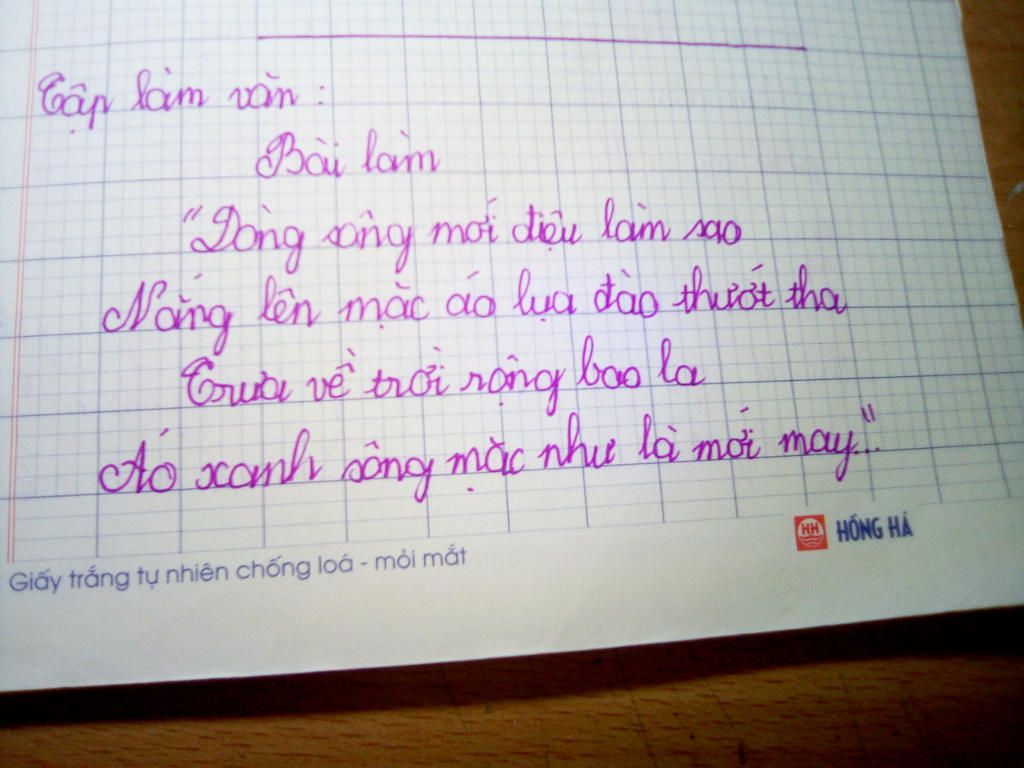 Tập làm văn :
Bài làm
"Dòng sông mới điệu làm sao
Nắng lên mặc áo lụa đào thướt tha
Trưa về trời rộng bao la
Áo xanh sông mặc như là mới may..."
HH HỒNG HÀ
Giấy trắng tự nhiên chống loá - mỏi mắt